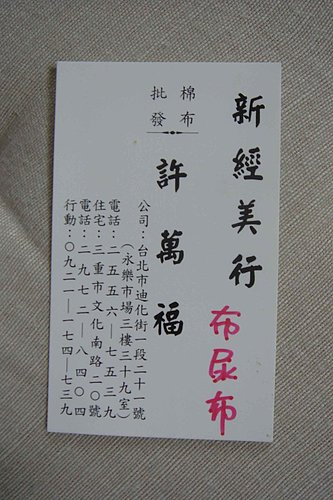 新經美行
布尿布
棉布
批發
許萬福
公司：台北市迪化街一段二十一號
（永樂市場三樓三十九室）
電話：二五五六—七五三九
住宅：三重市文化南路二〇號
電話：二九七二—八四〇四
行動：〇九二一—一七四—七三九